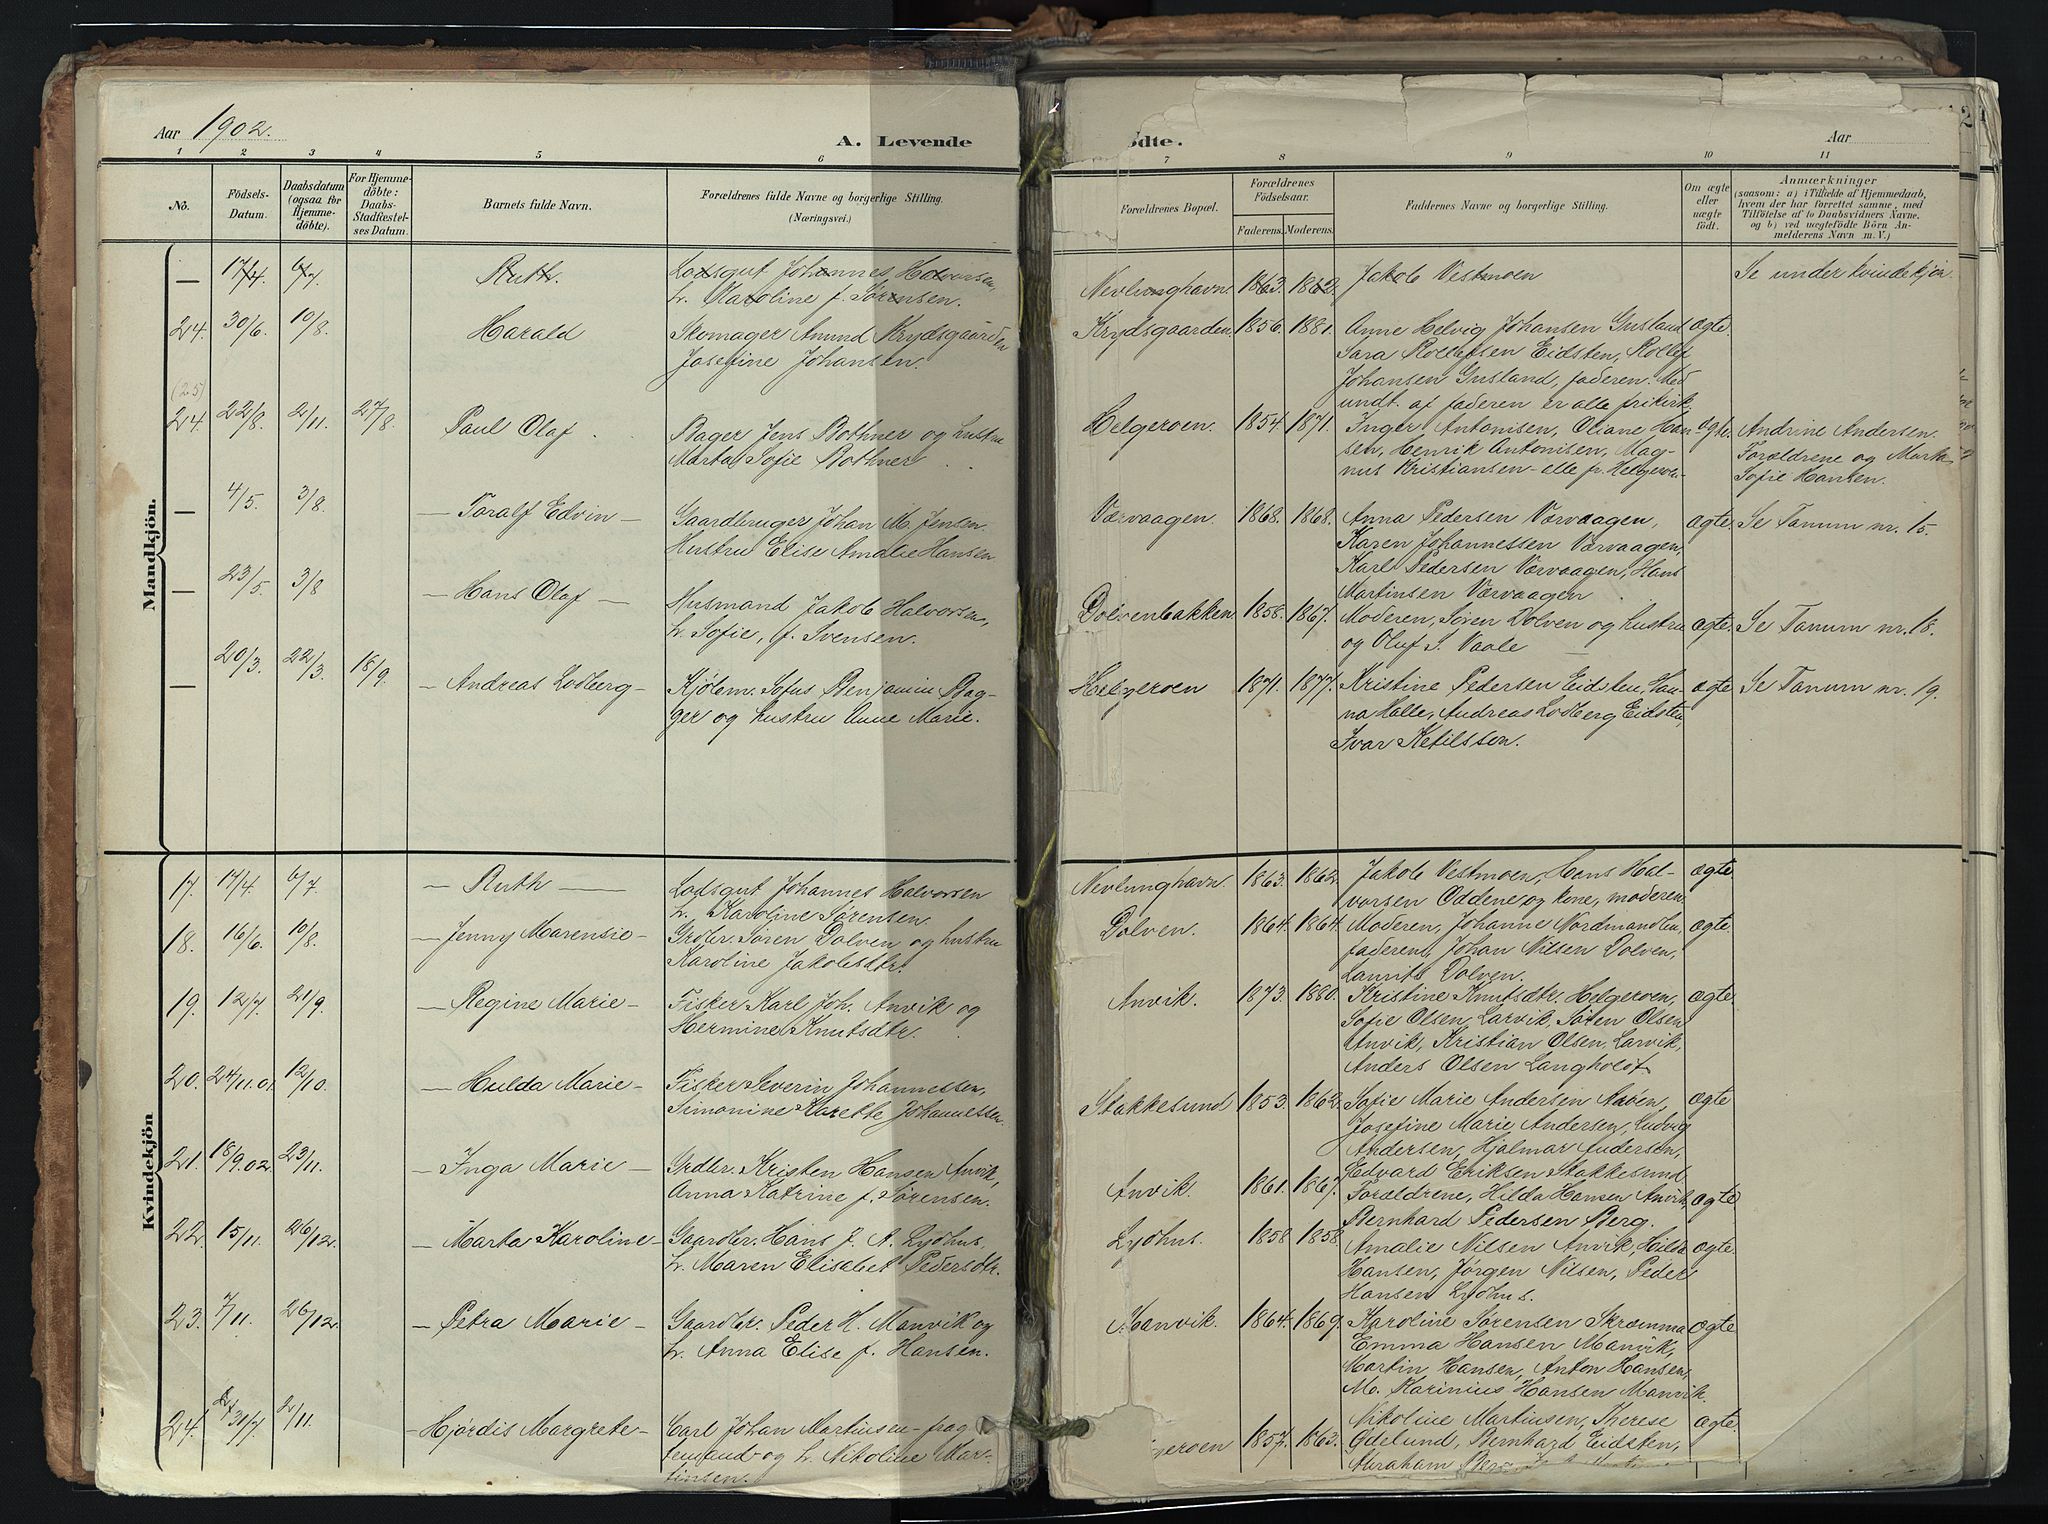 Aar 1902.
A. Levende
ødte.
Aar
1 2 3 4 5 6 7 8 9 10 11
No.
Födsels-Datum.
Daabsdatum (ogsaa for Hjemmedöbte).
For Hjemmedöbte: Daabs-Stadfæstelses Datum.
Barnets fulde Navn.
Forældrenes fulde Navne og borgerlige Stilling.
(Næringsvei.)
Forældrenes Bopæl.
Forældrenes Födselsaar.
Faderens. Moderens.
Faddernes Navne og borgerlige Stilling.
Om ægte eller uægte födt.
Anmærkninger
(saasom: a) i Tilfælde af Hjemmedaab, hvem der har forrettet samme, med Tilföielse af to Daabsvidners Navne, og b) ved uægtefödte Börn Anmelderens Navn m. V.)
Mandkjön.
— 17/4. 6/7. Ruth. Lodsgut Johannes Halvorsen,
h. Karoline f. Sørensen.
Nevlunghavn. 1863. 1862. Jakob Vestmoen
Se under kvindekjön
24. 30/6. 10/8. Harald
Skomager Amund Krydsgaarden
Josefine Johansen.
Krydsgaarden. 1856. 1881. Anne Helvig Johansen Gusland ægte.
Sara Rollefsen Eidsten, Rollef
Johansen Gusland, faderen. Med
undt. af faderen er alle frikirk.
(25)
24. 22/8. 2/11. 27/8. Paul Olaf
Bager Jens Bothner og hustru
Marta Sofie Bothner
Helgeroen. 1854. 1871. Inger Antonisen, Oliane Han ægte.
sen, Henrik Antonisen, Mag-
nus Kristiansen - alle fr. Helgeroen
Andrine Andersen.
Forældrene og Marta
Sofie Hansen.
— 4/5. 3/8. — Toralf Edvin —
Gaardbruger Johan M. Jensen.
Hustru Elise Amalie Hansen
Værvaagen. 1868. 1868. Anna Pedersen Værvaagen, ægte
Karen Johannessen Værvaagen,
Karl Pedersen Værvaagen, Hans
Martinsen Værvaagen
Se Tanum nr. 15.
— 23/5. 3/8 — Hans Olaf —
Husmand Jakob Halvorsen,
h. Sofie, f. Svensen.
Dolvenbakken 1858. 1867. Moderen, Søren Dolven og hustru ægte.
og Oluf S. Vaale
Se Tanum nr. 18.
— 20/3. 22/3. 18/9. — Andreas Lodberg —
Kjøbm. Sofus Benjamin Bag-
ger og hustru Anne Marie.
Helgeroen 1871. 1877. Kristine Pedersen Eidsten, Han- ægte
na Halle, Andreas Lodberg Eidsten,
Ivar Ketilssen.
Se Tanum nr. 19.
Kvindekjön
17. 17/4. 6/7. — Ruth —
Lodsgut Johannes Halvorsen
h. Karoline Sørensen.
Nevlunghavn. 1863. 1862. Jakob Vestmoen, Hans Hal- ægte
vorsen Oddene og kone, moderen.
18. 16/6. 10/8. — Jenny Marensie —
Grdbr. Søren Dolven og hustru
Karoline Jakobsdtr.
Dolven. 1864. 1864. Moderen, Johanne Nordmandlen, ægte.
faderen, Johan Nilsen Dolven,
Laurits Dolven.
19. 12/7. 21/9. — Regine Marie —
Fisker Karl Joh. Anvik og
Hermine Knutsdtr.
Anvik. 1873. 1880. Kristine Knutsdtr. Helgeroen, ægte.
Sofie Olsen, Larvik, Søren Olsen
Anvik, Kristian Olsen, Larvik,
Anders Olsen Langholdt
20. 24/11.01. 12/10. — Hulda Marie —
Fisker Severin Johannessen,
Simonine Karette Johannessen.
Stokkesund 1853. 1862. Sofie Marie Andersen Naven, ægte
Josefine Marie Andersen, Ludvig
Andersen, Hjalmar Andersen,
Edvard Eriksen Stokkesund
21. 18/9.02. 23/11. — Inga Marie —
Grdbr. Kristen Hansen Anvik,
Anna Katrine f. Sørensen.
Anvik. 1861. 1867. Forældrene, Hilda Hansen Anvik, ægte
Bernhard Pedersen Berg.
22. 15/11. 26/12. — Marta Karoline —
Gaardbr. Hans J. A. Lydhus,
h. Maren Elisabet Pedersdtr.
Lydhus. 1858. 1858. Amalie Nilsen Anvik, Hilda ægte
Hansen, Jørgen Nilsen, Peder
Hansen Lydhus.
23. 7/11. 26/12. — Petra Marie —
Gaardbr. Peder H. Manvik og
h. Anna Elise f. Hansen.
Manvik. 1864. 1869. Karoline Sørensen Skræmma ægte
Emma Hansen Manvik,
Martin Hansen, Anton Hansen,
M. Karinius Hansen Manvik.
24. 31/7. 2/11. — Hjørdis Margrete —
Carl Johan Martinsen - frag
temand - og h. Nikoline Mar-
tinsen.
geroen 1857. 1863. Nikoline Martinsen, Therese ægte.
Ødelund, Bernhard Eidsten,
Abraham